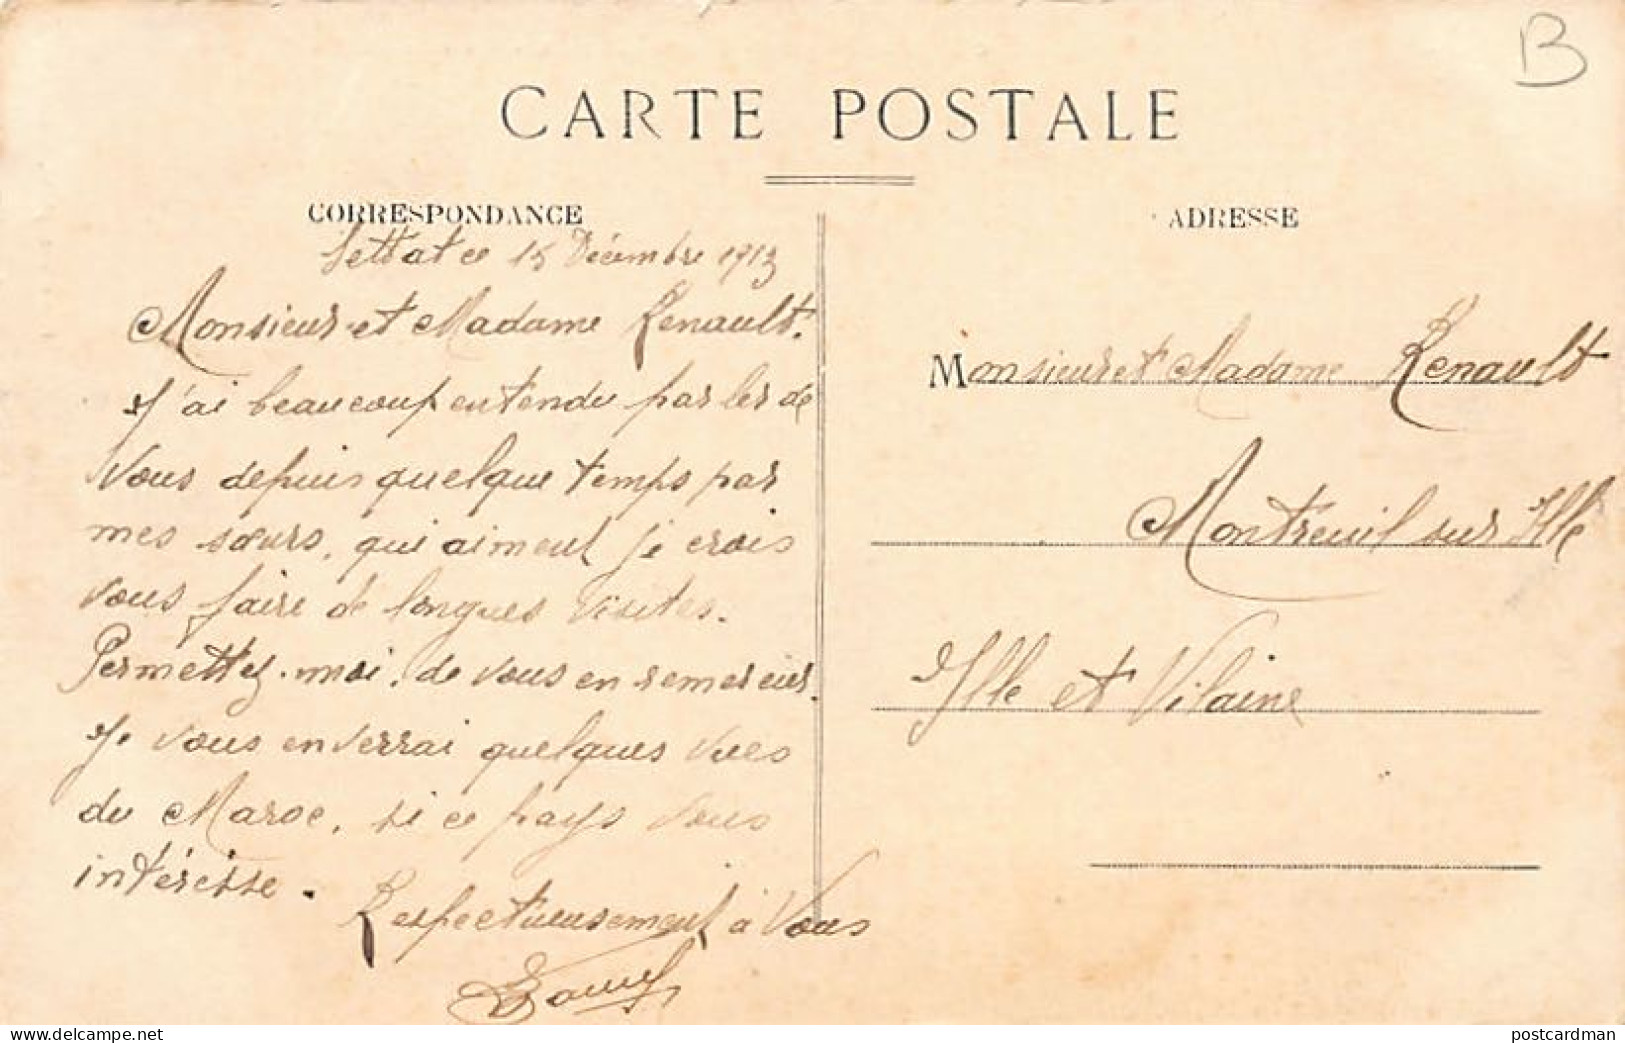 B
CARTE POSTALE
CORRESPONDANCE
Settat ce 15 Décembre 1913
Monsieur et Madame Renault.
J'ai beaucoup entendu parler de
Vous depuis quelque temps par
mes sœurs, qui aiment je crois
vous faire de longues visites.
Permettez-moi de vous en remercier.
Je vous enverrai quelques vues
du Maroc, si ce pays vous
intéresse.
Respectueusement à Vous
ADRESSE
Monsieur et Madame Renault
Montreuil sur Ille
Ille et Vilaine
www.delcampe.net
postcardman